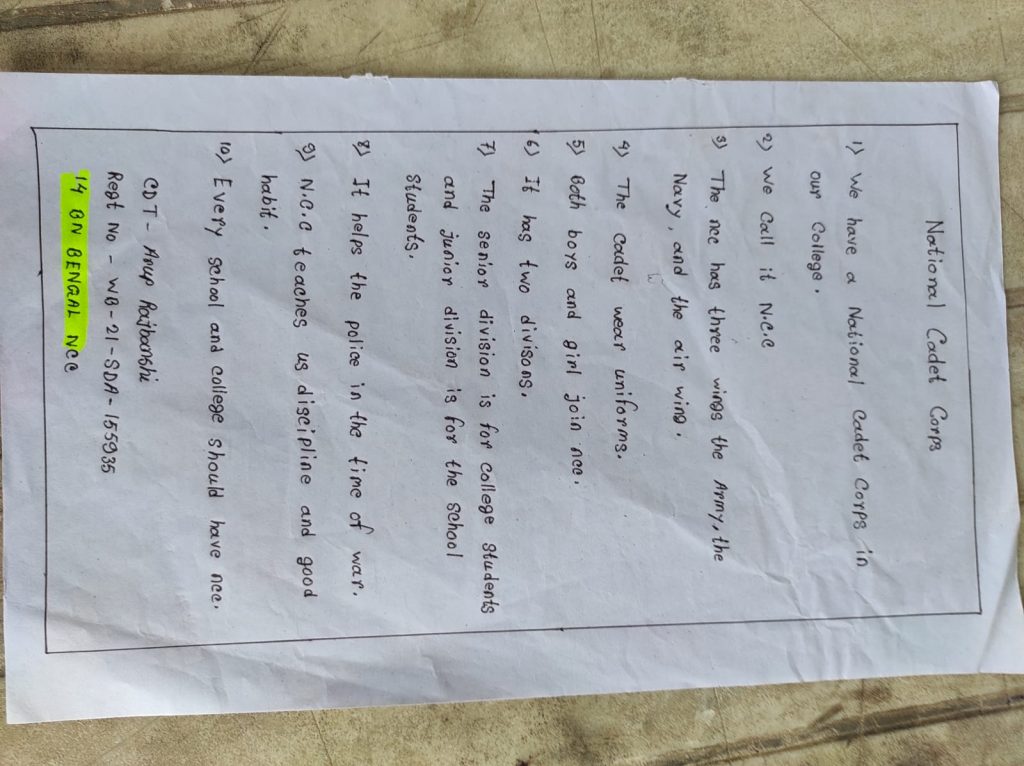 National Cadet Corps
1) We have a National Cadet Corps in
our College.
2) We Call it N.C.C
3) The ncc has three wings the Army, the
Navy, and the air wing.
4) The Cadet wear uniforms.
5) Both boys and girl join ncc.
6) It has two divisons.
7) The senior division is for college students
and junior division is for the School
Students.
8) It helps the police in the time of war.
9) N.C.C teaches us discipline and good
habit.
10) Every school and college should have ncc.
CDT - Anup Rajbanshi
Regt No - WB-21-SDA-155935
14 BN BENGAL NCC